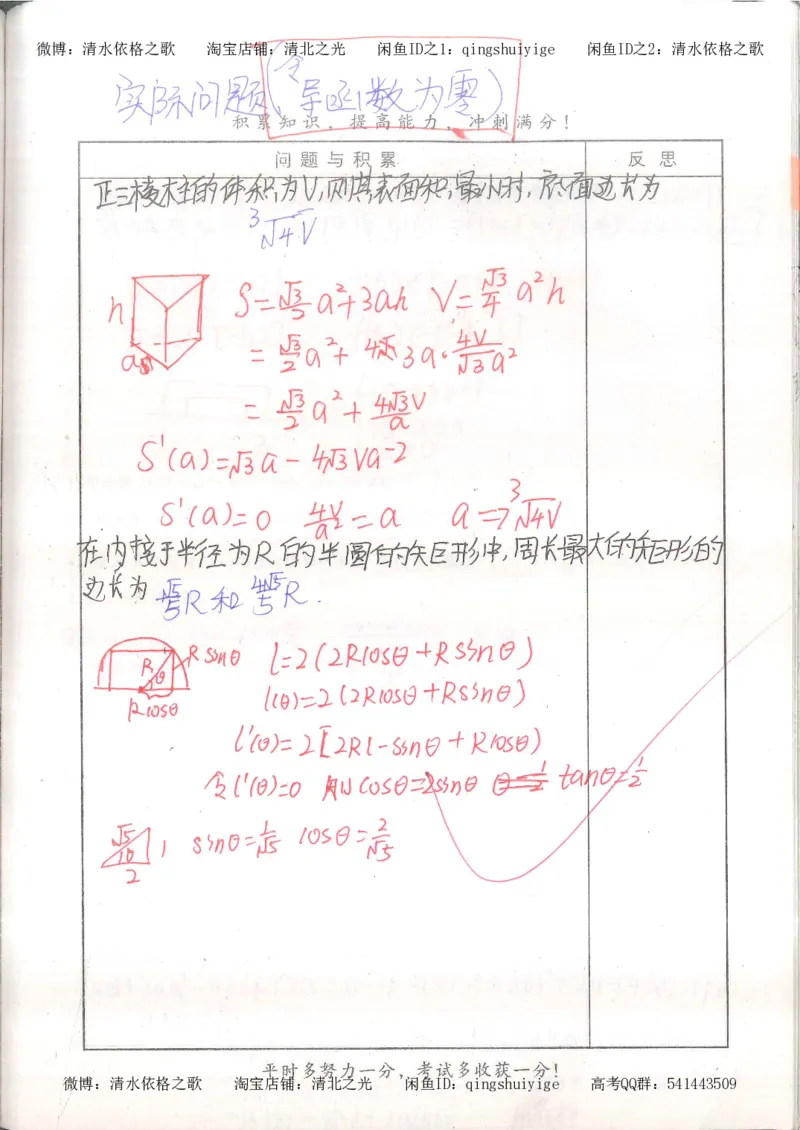 微博：清水依格之歌 淘宝店铺：清北之光 闲鱼ID之1：qingshuiyige 闲鱼ID之2：清水依格之歌
实际问题(令导函数为零)
积累知识，提高能力，冲刺满分！
问题与积累 反思
正三棱柱的体积为V,则其表面积最小时,底面边长为
³√4V
h
a
S=√3/2 a²+3ah V=√3/4 a²h
=√3/2 a²+ 3a·4V/√3a²
=√3/2 a²+4√3V/a
S'(a)=√3a-4√3Va⁻²
S'(a)=0 4V/a²=a a=³√4V
在内接于半径为R的半圆的矩形中,周长最大的矩形的
边长为 √5/5R和4√5/5R.
R θ Rsinθ l=2(2Rcosθ+Rsinθ)
Rcosθ l(θ)=2(2Rcosθ+Rsinθ)
l'(θ)=2[2R(-sinθ+Rcosθ)
令l'(θ)=0 则cosθ=2sinθ tanθ=1/2
√5 θ 1 sinθ=1/√5 cosθ=2/√5
2
平时多努力一分，考试多收获一分！
微博：清水依格之歌 淘宝店铺：清北之光 闲鱼ID：qingshuiyige 高考QQ群：541443509